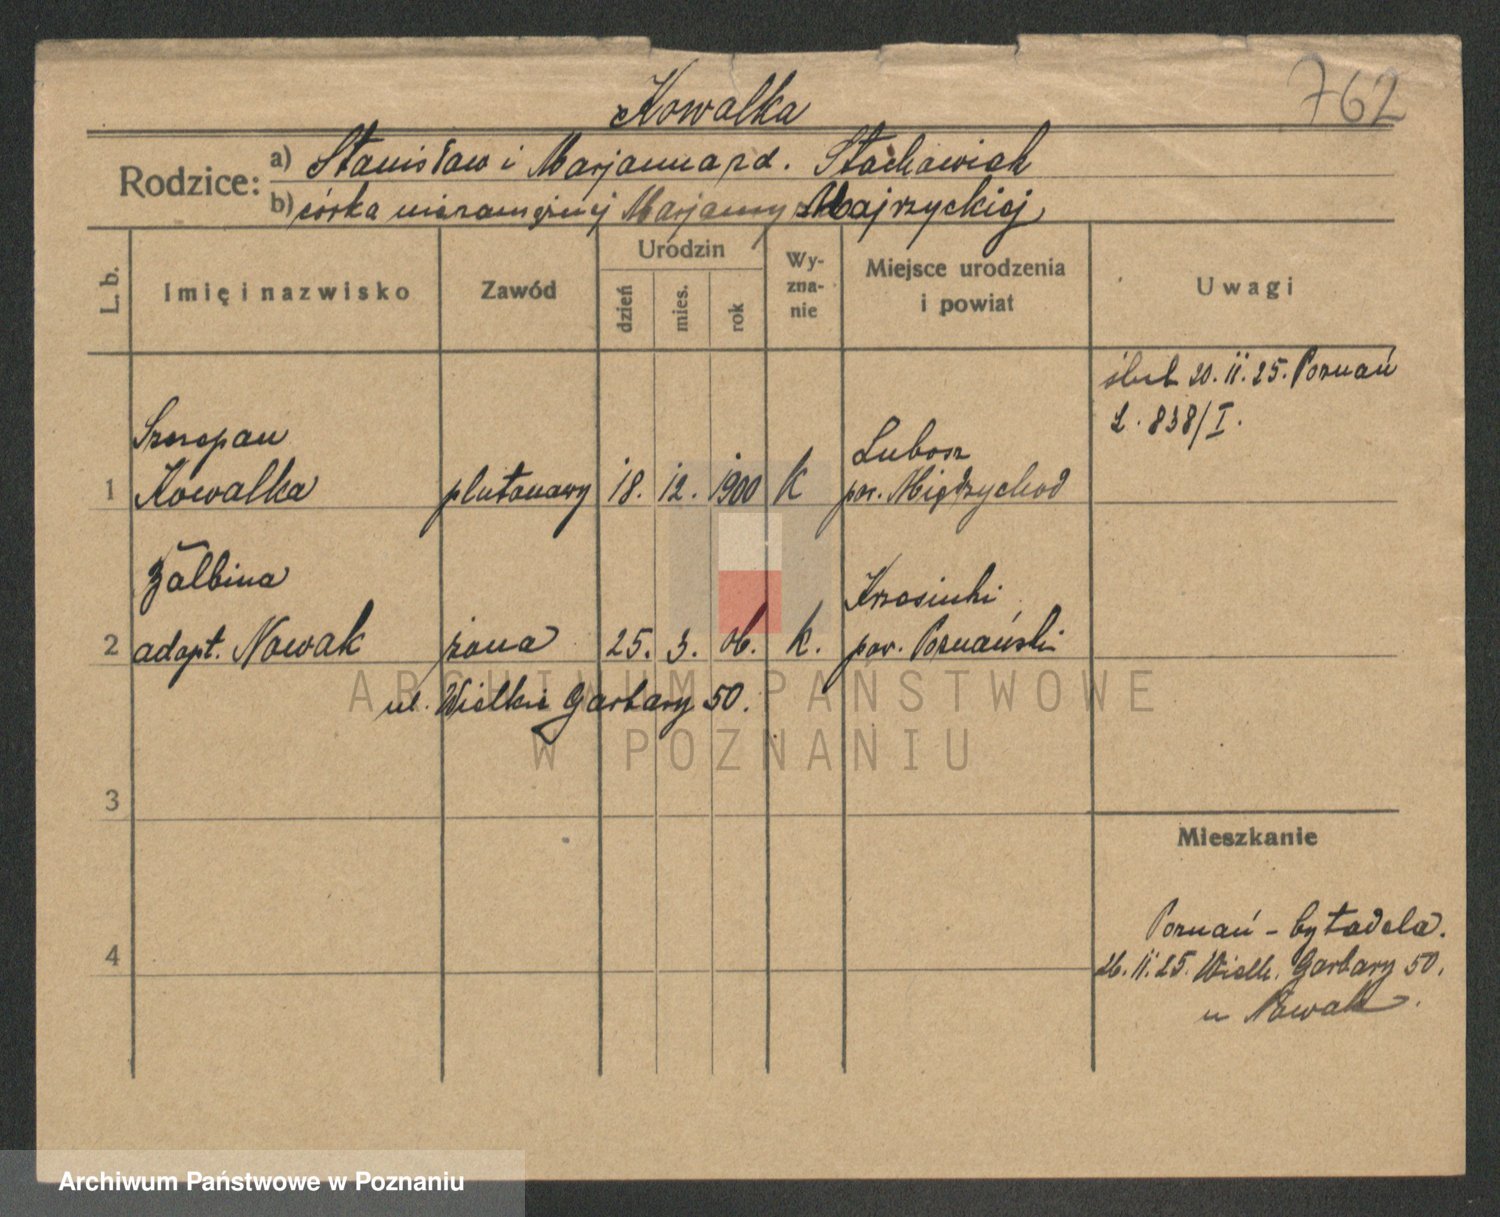 762
Kowalka
Rodzice: a) Stanisław i Marjanna zd. Stachowiak
b) córka niezamężnej Marjanny Majrzyckiej
L. b. Imię i nazwisko Zawód Urodzin dzień mies. rok Wy-zna-nie Miejsce urodzenia i powiat Uwagi
ślub 20.II.25. Poznań
L. 838/I.
Szczepan Lubosz
1 Kowalka plutonowy 18. 12. 1900 K pow. Międzychod
Balbina Krosinki
2 adopt. Nowak żona 25. 3. 06. k. pow. Poznański
ul. Wielkie Garbary 50.
ARCHIWUM PAŃSTWOWE
W POZNANIU
3
Mieszkanie
Poznań - Cytadela.
4
26.II.25. Wielk. Garbary 50.
u Nowak.
Archiwum Państwowe w Poznaniu